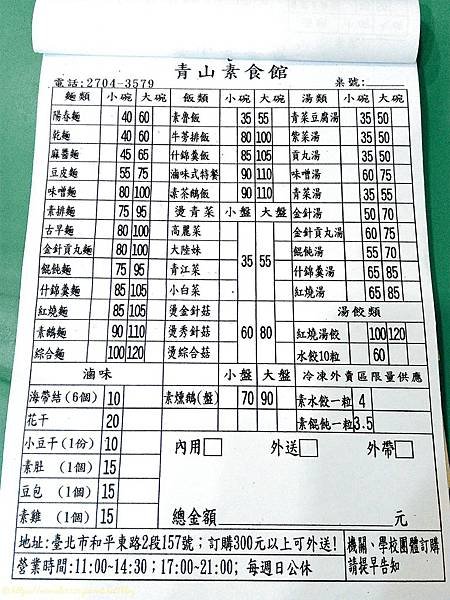 青山素食館
電話:2704-3579 桌號:
麵類 小碗 大碗 飯類 小碗 大碗 湯類 小碗 大碗
陽春麵 40 60 素魯飯 35 55 青菜豆腐湯 35 50
乾麵 40 60 牛蒡排飯 80 100 紫菜湯 35 50
麻醬麵 45 65 什錦羹飯 85 105 貢丸湯 35 50
豆皮麵 55 75 滷味式特餐 90 110 味噌湯 60 75
味噌麵 80 100 素茶鵝飯 90 110 青菜湯 35 55
素排麵 75 95 燙青菜 小盤 大盤 金針湯 50 70
古早麵 80 100 高麗菜 35 55 金針貢丸湯 60 75
金針貢丸麵 80 100 大陸妹 餛飩湯 55 70
餛飩麵 75 95 青江菜 什錦羹湯 65 85
什錦羹麵 85 105 小白菜 紅燒湯 65 85
紅燒麵 85 105 燙金針菇 60 80 湯餃類
素鵝麵 90 110 燙秀針菇 紅燒湯餃 100 120
綜合麵 100 120 燙綜合菇 水餃10粒 60
滷味 小盤 大盤 冷凍外賣區限量供應
海帶結(6個) 10 素燻鵝(盤) 70 90 素水餃一粒 4
花干 20 素餛飩一粒 3.5
小豆干(1份) 10 內用 外送 外帶
素肚 (1個) 15
豆包 (1個) 15
素雞 (1個) 15 總金額 元
地址:臺北市和平東路2段157號;訂購300元以上可外送! 機關、學校團體訂購
營業時間:11:00~14:30;17:00~21:00;每週日公休 請提早告知